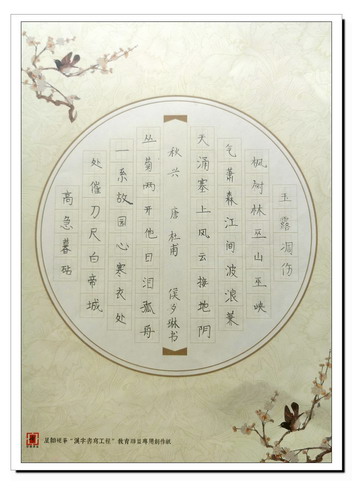 玉露凋伤
枫树林巫山巫峡
气萧森江间波浪兼
天涌塞上风云接地阴
秋兴 唐 杜甫 夕琳书
丛菊两开他日泪孤舟
一系故园心寒衣处
处催刀尺白帝城
高急暮砧
"漢字書寫工程"教育項目專用創作紙